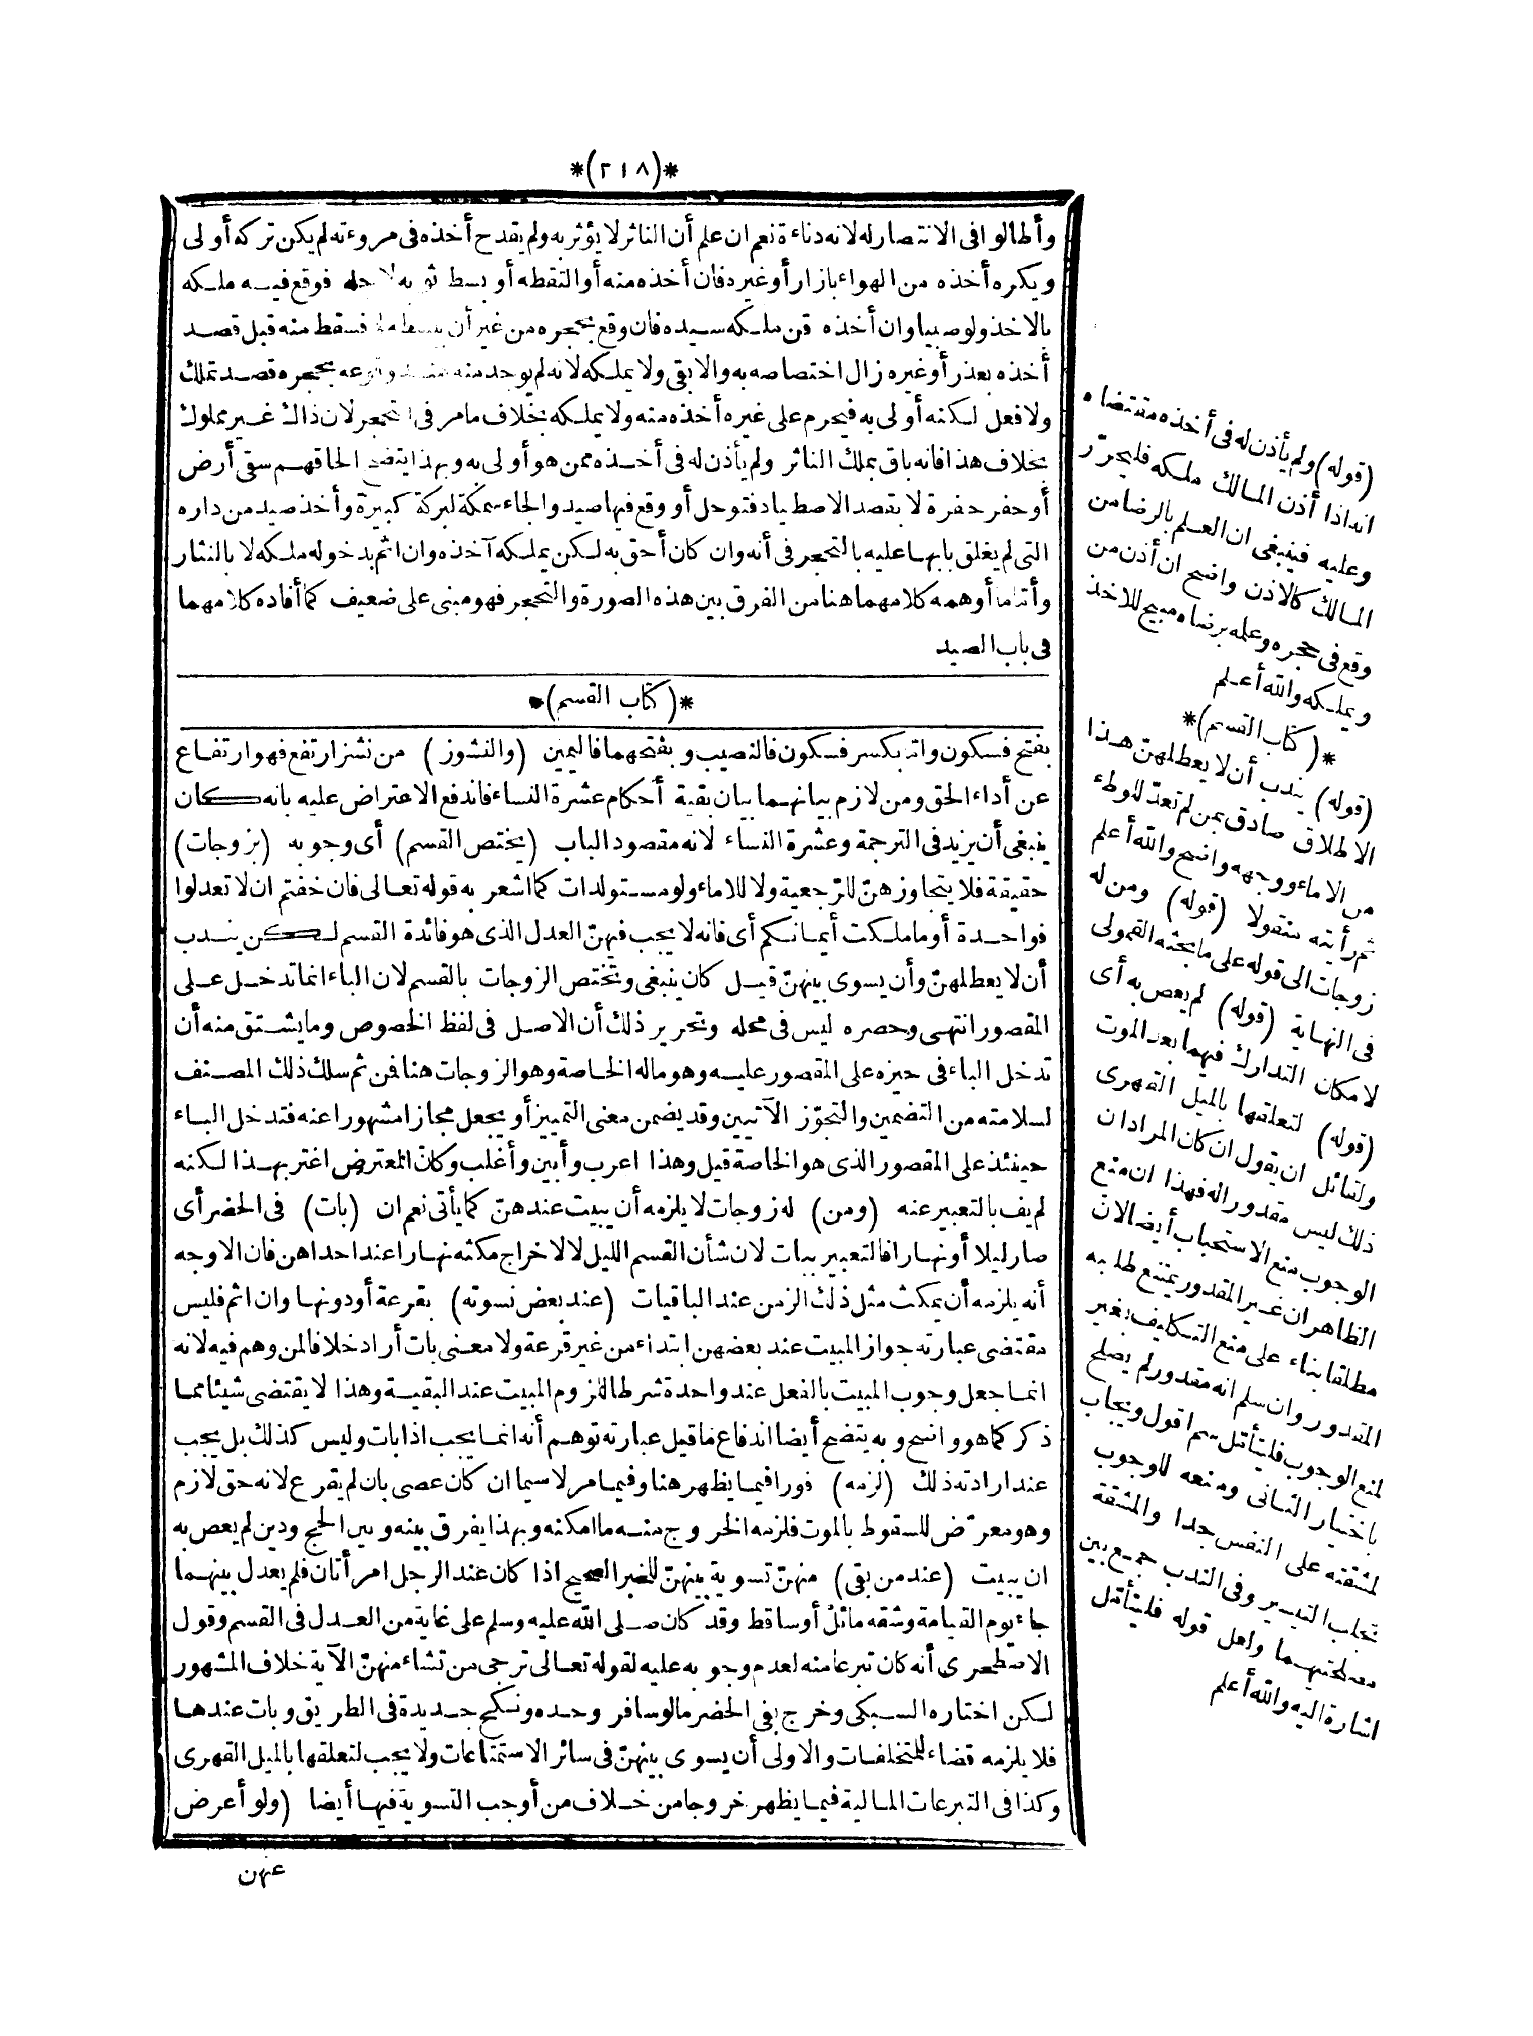 *(٢١٨)*
وأطالوا فى الانتصار له لانه دناءة نعم ان علم أن الناثر لا يؤثر به ولم يقدح أخذه فى مروءته لم يكن تركه أولى
ويكره أخذه من الهواء بازار أو غيره فان أخذه منه أو التقطه أو بسط ثوبه لاجله فوقع فيه ملكه
بالاخذ ولو صبيا وان أخذه قن ملكه سيده فان وقع بحجره من غير أن يبسطه له فسقط منه قبل قصد
أخذه بعذر أو غيره زال اختصاصه به والا بقى ولا يملكه لانه لم يوجد منه قصد وقوعه بحجره قصد تملك
ولا فعل لكنه أولى به فيحرم على غيره أخذه منه ولا يملكه بخلاف ما مر فى التحجر لان ذاك غير مملوك
بخلاف هذا فانه باق بملك الناثر ولم يأذن له فى أخذه ممن هو أولى به وبهذا يتضح الحاقهم سقى أرض
أو حفر حفرة لا بقصد الاصطياد فتوحل أو وقع فيها صيد والجاء سمكة لبركة كبيرة وأخذ صيد من داره
التى لم يغلق بابها عليه بالتحجر فى أنه وان كان أحق به لكن يملكه آخذه وان اثم بدخوله ملكه لا بالنثار
وأما ما أوهمه كلامهما هنا من الفرق بين هذه الصورة والتحجر فهو مبنى على ضعيف كما أفاده كلامهما
فى باب الصيد
*(كتاب القسم)*
بفتح فسكون واما بكسر فسكون فالنصيب وبفتحهما فاليمين (والنشوز) من نشز ارتفع فهو ارتفاع
عن أداء الحق ومن لازم بيانهما بيان بقية أحكام عشرة النساء فاندفع الاعتراض عليه بانه كان
ينبغى أن يزيد فى الترجمة وعشرة النساء لانه مقصود الباب (يختص القسم) أى وجوبه (بزوجات)
حقيقة فلا يتجاوزهنّ للرجعية ولا للاماء ولو مستولدات كما اشعر به قوله تعالى فان خفتم ان لا تعدلوا
فواحدة أو ما ملكت أيمانكم أى فانه لا يجب فيهنّ العدل الذى هو فائدة القسم لكن يندب
أن لا يعطلهنّ وأن يسوى بينهنّ قيل كان ينبغى وتختص الزوجات بالقسم لان الباء انما تدخل على
المقصور انتهى وحصره ليس فى محله وتحرير ذلك أن الاصل فى لفظ الخصوص وما يشتق منه أن
تدخل الباء فى حيزه على المقصور عليه وهو ماله الخاصة وهو الزوجات هنا فمن ثم سلك ذلك المصنف
لسلامته من التضمين والتجوّز الآتيين وقد يضمن معنى التمييز أو يجعل مجازا مشهورا عنه فتدخل الباء
حينئذ على المقصور الذى هو الخاصة قيل وهذا اعرب وأبين وأغلب وكأن المعترض اغتر بهذا لكنه
لم يف بالتعبير عنه (ومن) له زوجات لا يلزمه أن يبيت عندهنّ كما يأتى نعم ان (بات) فى الحضر أى
صار ليلا أو نهارا فالتعبير ببات لان شأن القسم الليل لا لاخراج مكثه نهارا عند احداهن فان الاوجه
أنه يلزمه أن يمكث مثل ذلك الزمن عند الباقيات (عند بعض نسوته) بقرعة أو دونها وان اثم فليس
مقتضى عبارته جواز المبيت عند بعضهن ابتداء من غير قرعة ولا معنى بات أراد خلافا لمن وهم فيه لانه
انما جعل وجوب المبيت بالفعل عند واحدة شرطا للزوم المبيت عند البقية وهذا لا يقتضى شيئا مما
ذكر كما هو واضح وبه يتضح أيضا اندفاع ما قيل عبارته توهم أنه انما يجب اذا بات وليس كذلك بل يجب
عند ارادته ذلك (لزمه) فورا فيما يظهر هنا وفيما مر لا سيما ان كان عصى بان لم يقرع لانه حق لازم
وهو معرّض للسقوط بالموت فلزمه الخروج منه ما امكنه وبهذا يفرق بينه وبين الحج ودين لم يعص به
ان يبيت (عند من بقى) منهنّ تسوية بينهنّ للخبر الصحيح اذا كان عند الرجل امرأتان فلم يعدل بينهما
جاء يوم القيامة وشقه مائل أو ساقط وقد كان صلى الله عليه وسلم على غاية من العدل فى القسم وقول
الاصطخرى أنه كان تبرعا منه لعدم وجوبه عليه لقوله تعالى ترجى من تشاء منهنّ الآية خلاف المشهور
لكن اختاره السبكى وخرج بفى الحضر ما لو سافر وحده ونكح جديدة فى الطريق وبات عندها
فلا يلزمه قضاء للمتخلفات والاولى أن يسوى بينهنّ فى سائر الاستمتاعات ولا يجب لتعلقها بالميل القهرى
وكذا فى التبرعات المالية فيما يظهر خروجا من خلاف من أوجب التسوية فيها أيضا (ولو أعرض
عنهن
(قوله) ولم يأذن له فى أخذه مقتضاه
انه اذا أذن المالك ملكه فليحرّر
وعليه فينبغى ان العلم بالرضا من
المالك كالاذن واضح ان أذن من
وقع فى حجره وعلمه برضاه مبيح للاخذ
ويملكه والله أعلم
*(كتاب القسم)*
(قوله) يندب أن لا يعطلهنّ هذا
الاطلاق صادق بمن لم تعدّ للوطء
من الاماء ووجهه واضح والله أعلم
ثم رأيته منقولا (قوله) ومن له
زوجات الى قوله على ما بحثه القمولى
فى النهاية (قوله) لم يعص به أى
لامكان التدارك فيهما بعد الموت
(قوله) لتعلقها بالميل القهرى
ولقائل ان يقول ان كان المراد ان
ذلك ليس مقدورا له فهذا ان منع
الوجوب منع الاستحباب أيضا لان
الظاهر ان غير المقدور يمتنع طلبه
مطلقا بناء على منع التكليف بغير
المقدور وان سلم انه مقدور لم يصلح
لمنع الوجوب فليتأمّل سم اقول ويجاب
باختيار الثانى ومنعه للوجوب
لمشقته على النفس جدا والمشقة
تجلب التيسير وفى الندب جمع بين
مصلحتيهما ولعل قوله فليتأمّل
اشارة اليه والله أعلم